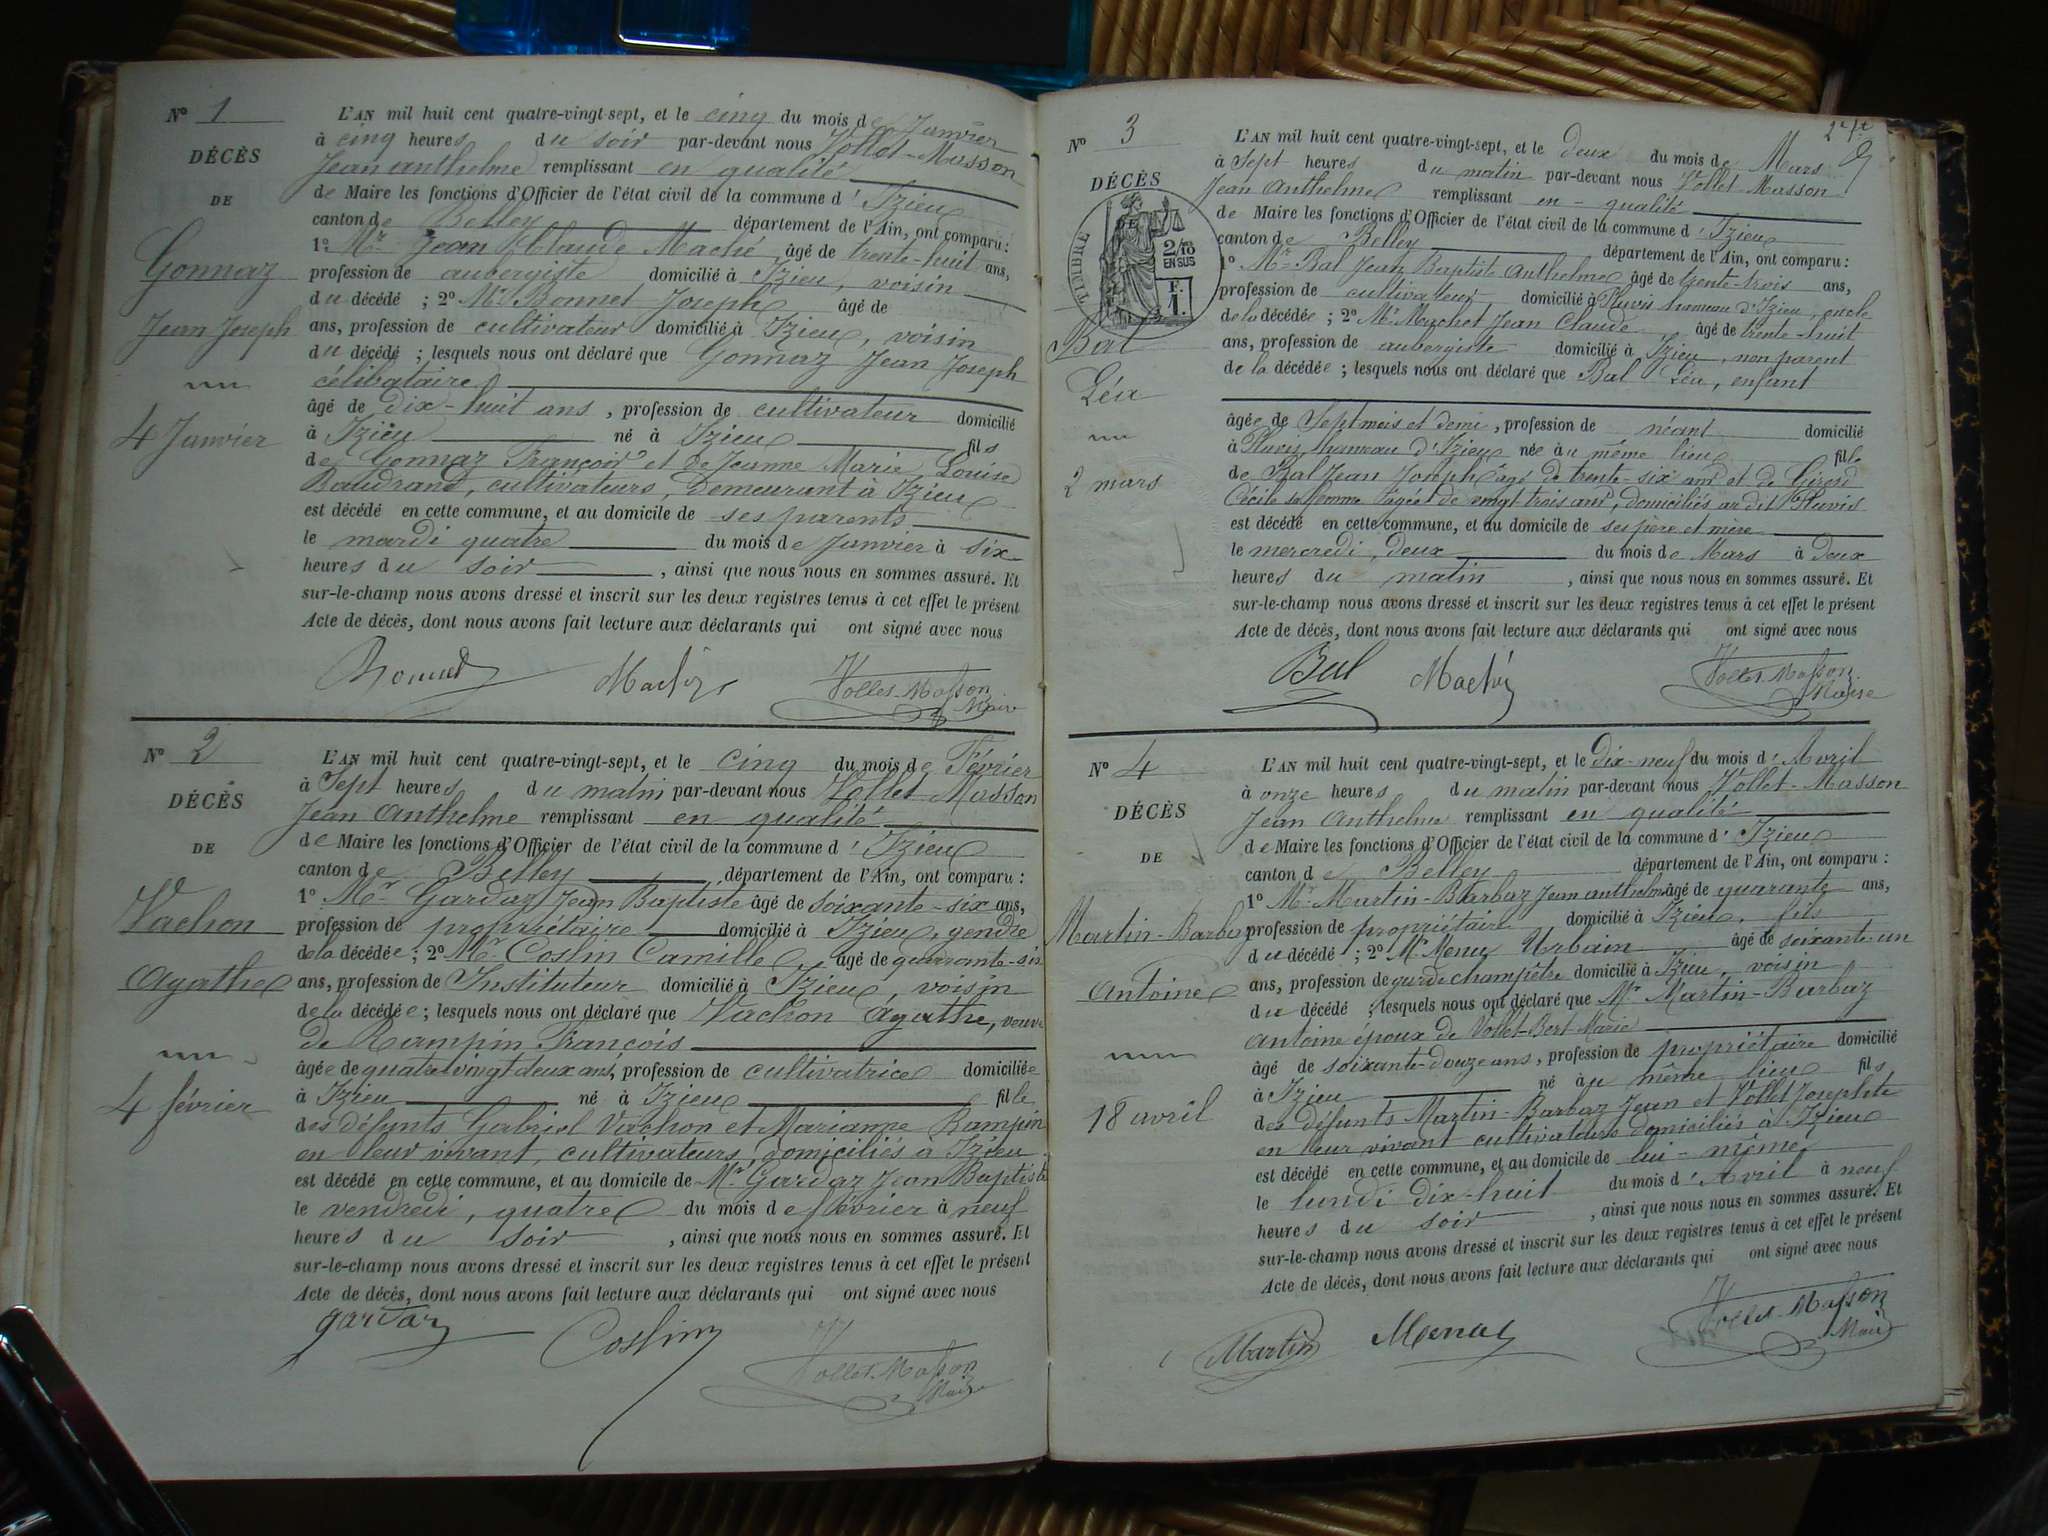 Nº 1
DÉCÈS
DE
Gonnaz
Jean Joseph
4 Janvier
L'AN mil huit cent quatre-vingt-sept, et le cinq du mois de Janvier
à cinq heures du soir par-devant nous Vollet-Masson
Jean Anthelme remplissant en qualité
de Maire les fonctions d'Officier de l'état civil de la commune d'Izieu
canton de Belley département de l'Ain, ont comparu :
1º Mr Jean Claude Maché âgé de trente-huit ans,
profession de aubergiste domicilié à Izieu, voisin
du décédé ; 2º Mr Bonnet Joseph âgé de
ans, profession de cultivateur domicilié à Izieu, voisin
du décédé ; lesquels nous ont déclaré que Gonnaz Jean Joseph
célibataire
âgé de dix-huit ans, profession de cultivateur domicilié
à Izieu né à Izieu fils
de Gonnaz François et de Jeanne Marie Louise
Baudrand, cultivateurs, demeurant à Izieu
est décédé en cette commune, et au domicile de ses parents
le mardi quatre du mois de Janvier à six
heures du soir, ainsi que nous nous en sommes assuré. Et
sur-le-champ nous avons dressé et inscrit sur les deux registres tenus à cet effet le présent
Acte de décès, dont nous avons fait lecture aux déclarants qui ont signé avec nous
Bonnet Maché Vollet-Masson
Maire
Nº 2
DÉCÈS
DE
Vachon
Agathe
4 février
L'AN mil huit cent quatre-vingt-sept, et le cinq du mois de Février
à Sept heures du matin par-devant nous Vollet-Masson
Jean Anthelme remplissant en qualité
de Maire les fonctions d'Officier de l'état civil de la commune d'Izieu
canton de Belley département de l'Ain, ont comparu :
1º Mr Gardaz Jean Baptiste âgé de soixante-six ans,
profession de propriétaire domicilié à Izieu, gendre
de la décédée ; 2º Mr Coslin Camille, âgé de quarante-six
ans, profession de Instituteur domicilié à Izieu, voisin
de la décédée ; lesquels nous ont déclaré que Vachon Agathe, veuve
de Rampin François
âgée de quatre vingt deux ans, profession de cultivatrice domiciliée
à Izieu né à Izieu fille
des défunts Gabriel Vachon et Marianne Rampin
en leur vivant, cultivateurs, domiciliés à Izieu
est décédé en cette commune, et au domicile de Mr Gardaz Jean Baptiste
le vendredi, quatre du mois de février à neuf
heures du soir, ainsi que nous nous en sommes assuré. Et
sur-le-champ nous avons dressé et inscrit sur les deux registres tenus à cet effet le présent
Acte de décès, dont nous avons fait lecture aux déclarants qui ont signé avec nous
gardaz Coslin Vollet-Masson
Maire
Nº 3
DÉCÈS
DE
TIMBRE
2/10
EN SUS
F.
1.
Bal
Léa
2 mars
L'AN mil huit cent quatre-vingt-sept, et le deux du mois de Mars
à Sept heures du matin par-devant nous Vollet-Masson
Jean Anthelme remplissant en-qualité
de Maire les fonctions d'Officier de l'état civil de la commune d'Izieu
canton de Belley département de l'Ain, ont comparu :
1º Mr Bal Jean Baptiste Anthelme âgé de trente-trois ans,
profession de cultivateur, domicilié à Pluvis hameau d'Izieu, oncle
de la décédée ; 2º Mr Machet Jean Claude âgé de trente-huit
ans, profession de aubergiste domicilié à Izieu, non parent
de la décédée ; lesquels nous ont déclaré que Bal Léa, enfant
âgée de Sept mois et demi, profession de néant domicilié
à Pluvis, hameau d'Izieu née au même lieu fille
de Bal Jean Joseph âgé de trente-six ans et de Girod
Cécile sa femme âgée de vingt trois ans, domiciliés au dit Pluvis
est décédé en cette commune, et au domicile de ses père et mère
le mercredi, deux du mois de Mars à deux
heures du matin, ainsi que nous nous en sommes assuré. Et
sur-le-champ nous avons dressé et inscrit sur les deux registres tenus à cet effet le présent
Acte de décès, dont nous avons fait lecture aux déclarants qui ont signé avec nous
Bal Maché Vollet-Masson
Maire
Nº 4
DÉCÈS
DE
Martin-Barbaz
Antoine
18 avril
L'AN mil huit cent quatre-vingt-sept, et le Dix-neuf du mois d'Avril
à onze heures du matin par-devant nous Vollet-Masson
Jean Anthelme remplissant en qualité
de Maire les fonctions d'Officier de l'état civil de la commune d'Izieu
canton de Belley département de l'Ain, ont comparu :
1º Mr Martin-Barbaz Jean anthelme âgé de quarante ans,
profession de propriétaire domicilié à Izieu, fils
du décédé ; 2º Mr Menu Urbain âgé de soixante un
ans, profession de garde champêtre domicilié à Izieu, voisin
du décédé ; lesquels nous ont déclaré que Mr Martin-Barbaz
Antoine époux de Vollet-Bert Marie
âgé de soixante-douze ans, profession de propriétaire domicilié
à Izieu né au même lieu fils
des défunts Martin-Barbaz Jean et Vollet Josephte
en leur vivant cultivateurs domiciliés à Izieu
est décédé en cette commune, et au domicile de lui-même
le lundi dix-huit du mois d'Avril à neuf
heures du soir, ainsi que nous nous en sommes assuré. Et
sur-le-champ nous avons dressé et inscrit sur les deux registres tenus à cet effet le présent
Acte de décès, dont nous avons fait lecture aux déclarants qui ont signé avec nous
Martin Vollet-Masson
Maire